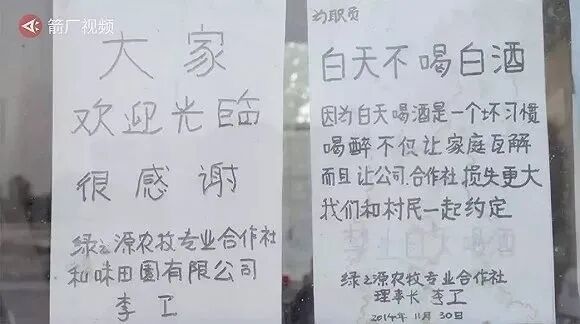 箭厂视频
大家
欢迎光临
很感谢
绿之源农牧专业合作社
和味田园有限公司
李卫
为职员
白天不喝白酒
因为白天喝酒是一个坏习惯
喝醉不仅让家庭瓦解
而且让公司.合作社损失更大
我们和村民一起约定
绿之源农牧专业合作社
理事长 李卫
2014年11月30日